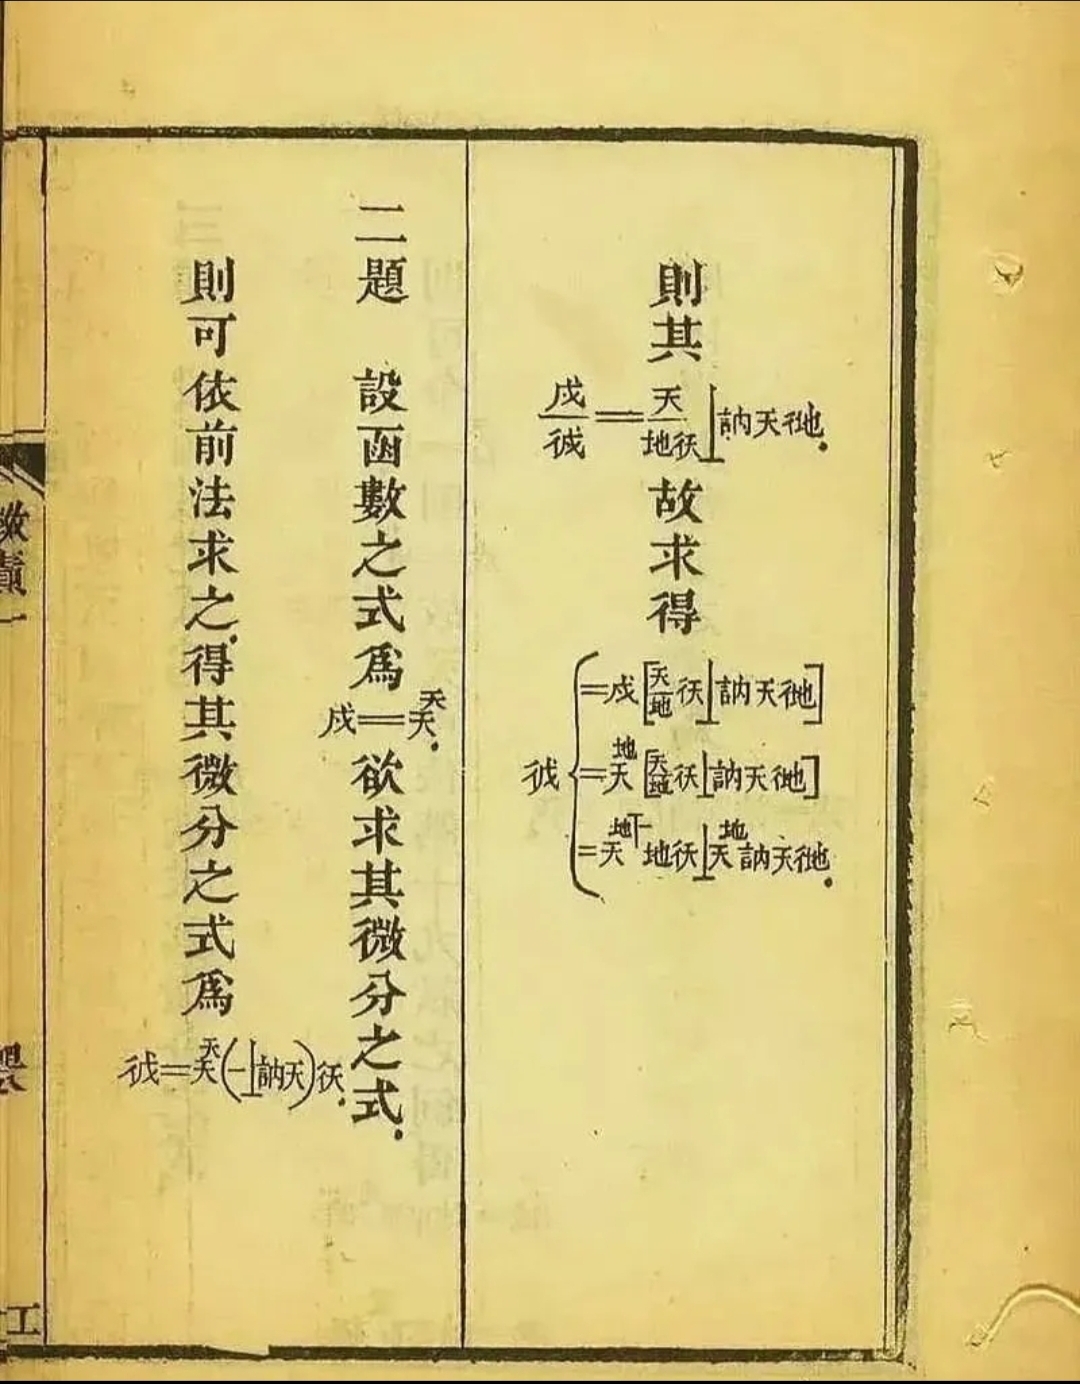 則其
戍/彳戍=天/地彳天⊥訥天彳地.
故求得
彳戍{=戍[天/地彳天⊥訥天彳地]
=天^地[天/地彳天⊥訥天彳地]
=天^(地丅一)地彳天⊥天^地訥天彳地.
二題 設函數之式爲
戍=天^天.
欲求其微分之式.
則可依前法求之.得其微分之式爲
彳戍=天^天(一⊥訥天)彳天.